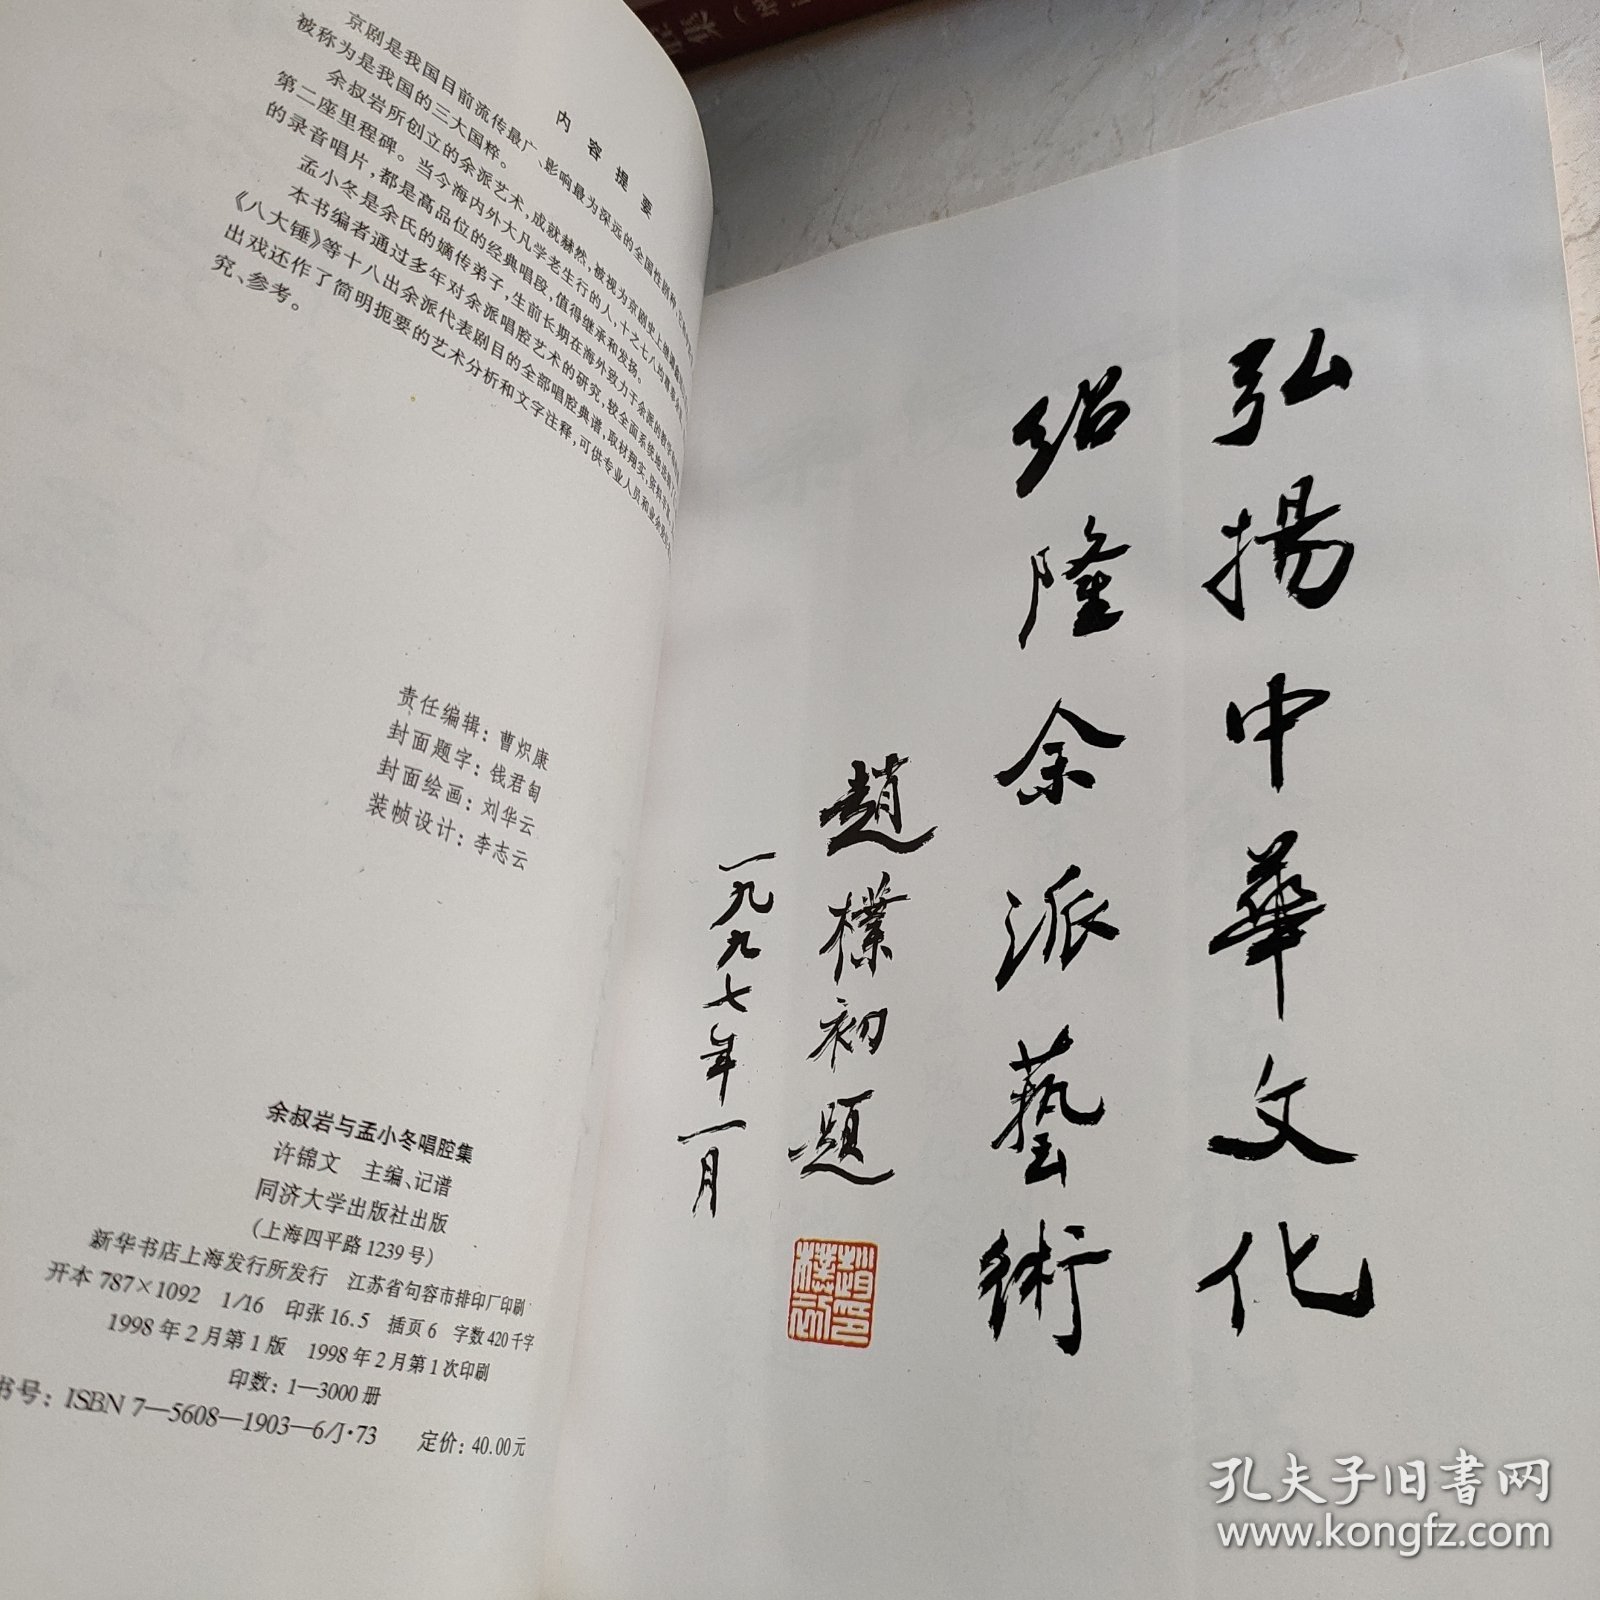 内容提要
京剧是我国目前流传最广、影响最为深远的全国性剧种,
被称为是我国的三大国粹。
余叔岩所创立的余派艺术,成就赫然,被视为京剧史上
第二座里程碑。当今海内外大凡学老生行的人,十之七八均
的录音唱片,都是高品位的经典唱段,值得继承和发扬。
孟小冬是余氏的嫡传弟子,生前长期在海外致力于余派的教学
本书编者通过多年对余派唱腔艺术的研究,较全面系统地
《八大锤》等十八出余派代表剧目的全部唱腔典谱,取材翔实,资料
出戏还作了简明扼要的艺术分析和文字注释,可供专业人员和业余
究、参考。
责任编辑:曹炽康
封面题字:钱君匋
封面绘画:刘华云
装帧设计:李志云
余叔岩与孟小冬唱腔集
许锦文 主编、记谱
同济大学出版社出版
(上海四平路1239号)
新华书店上海发行所发行 江苏省句容市排印厂印刷
开本 787×1092 1/16 印张 16.5 插页 6 字数 420 千字
1998 年 2 月第 1 版 1998 年 2 月第 1 次印刷
印数:1—3000 册
书号:ISBN 7—5608—1903—6/J·73 定价:40.00元
弘揚中華文化
紹隆余派藝術
趙樸初題
一九九七年一月
孔夫子旧书网
www.kongfz.com